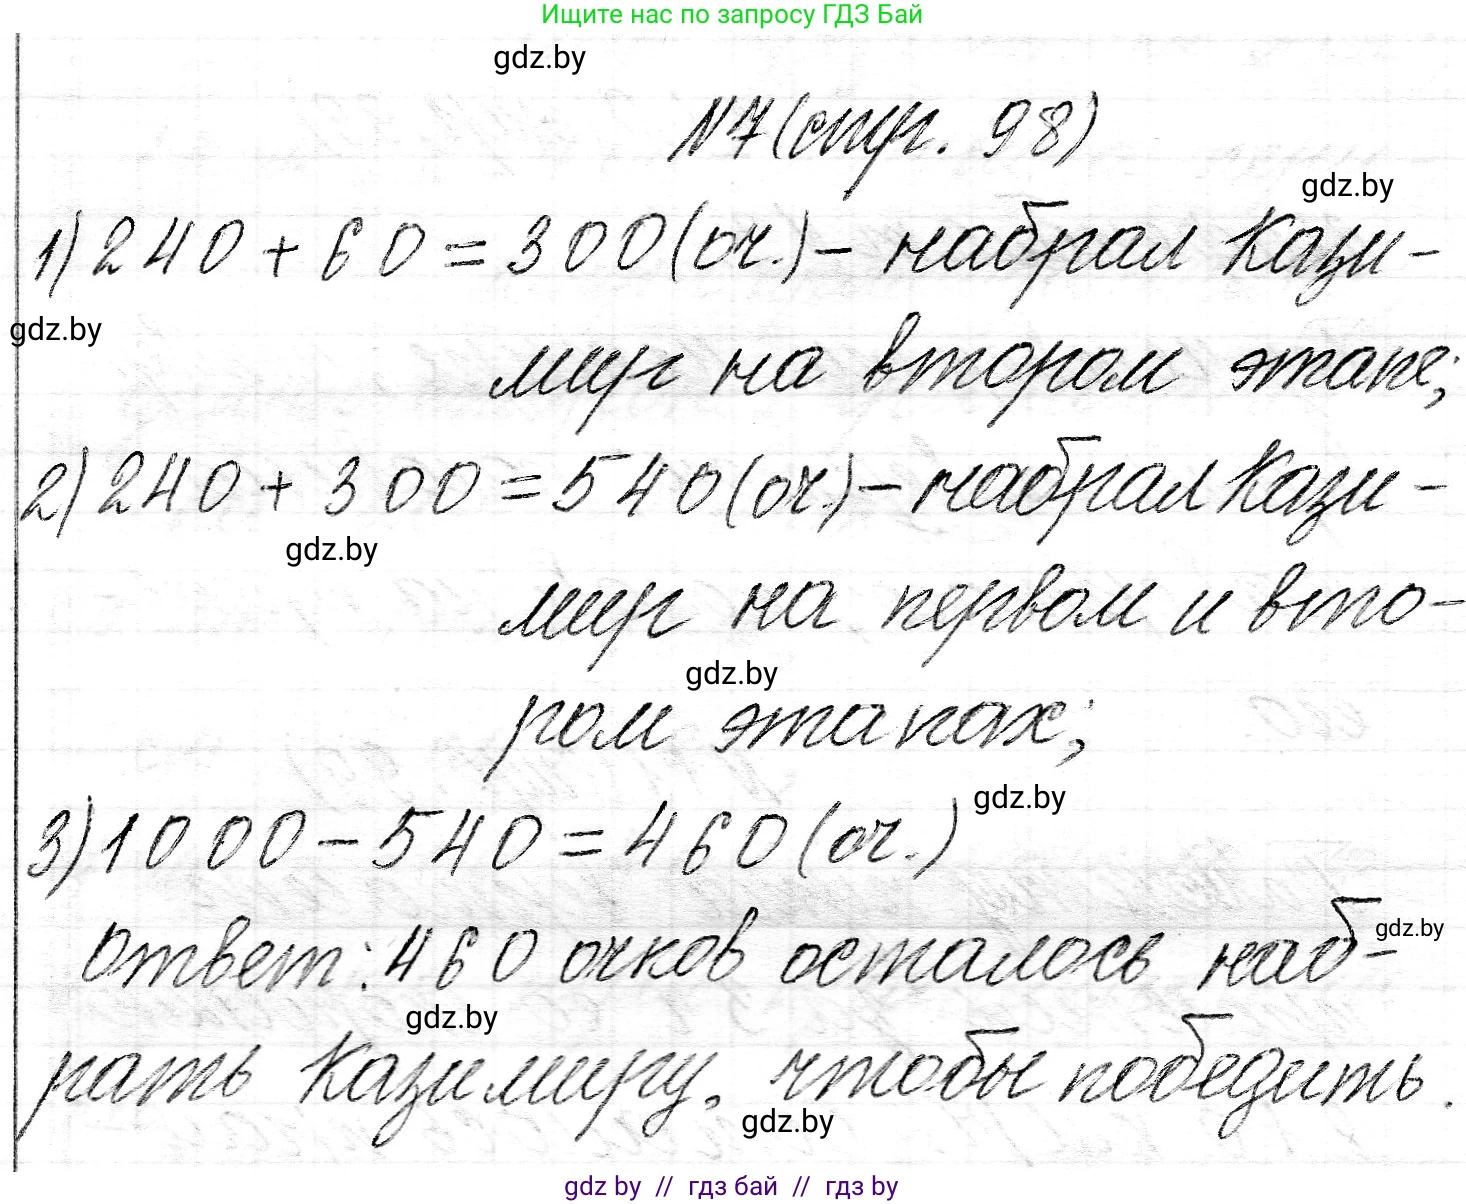 Ищите нас по запросу ГДЗ Бай
gdz.by
№7 (стр. 98)
gdz.by
1) 240 + 60 = 300 (оч.) – набрал Кази-
gdz.by
мир на втором этапе;
2) 240 + 300 = 540 (оч.) – набрал Кази-
gdz.by
мир на первом и вто-
gdz.by
ром этапах;
gdz.by
3) 1000 – 540 = 460 (оч.)
gdz.by
Ответ: 460 очков осталось наб-
gdz.by
рать Казимиру, чтобы победить.
gdz.by
gdz by // гдз бай // гдз by